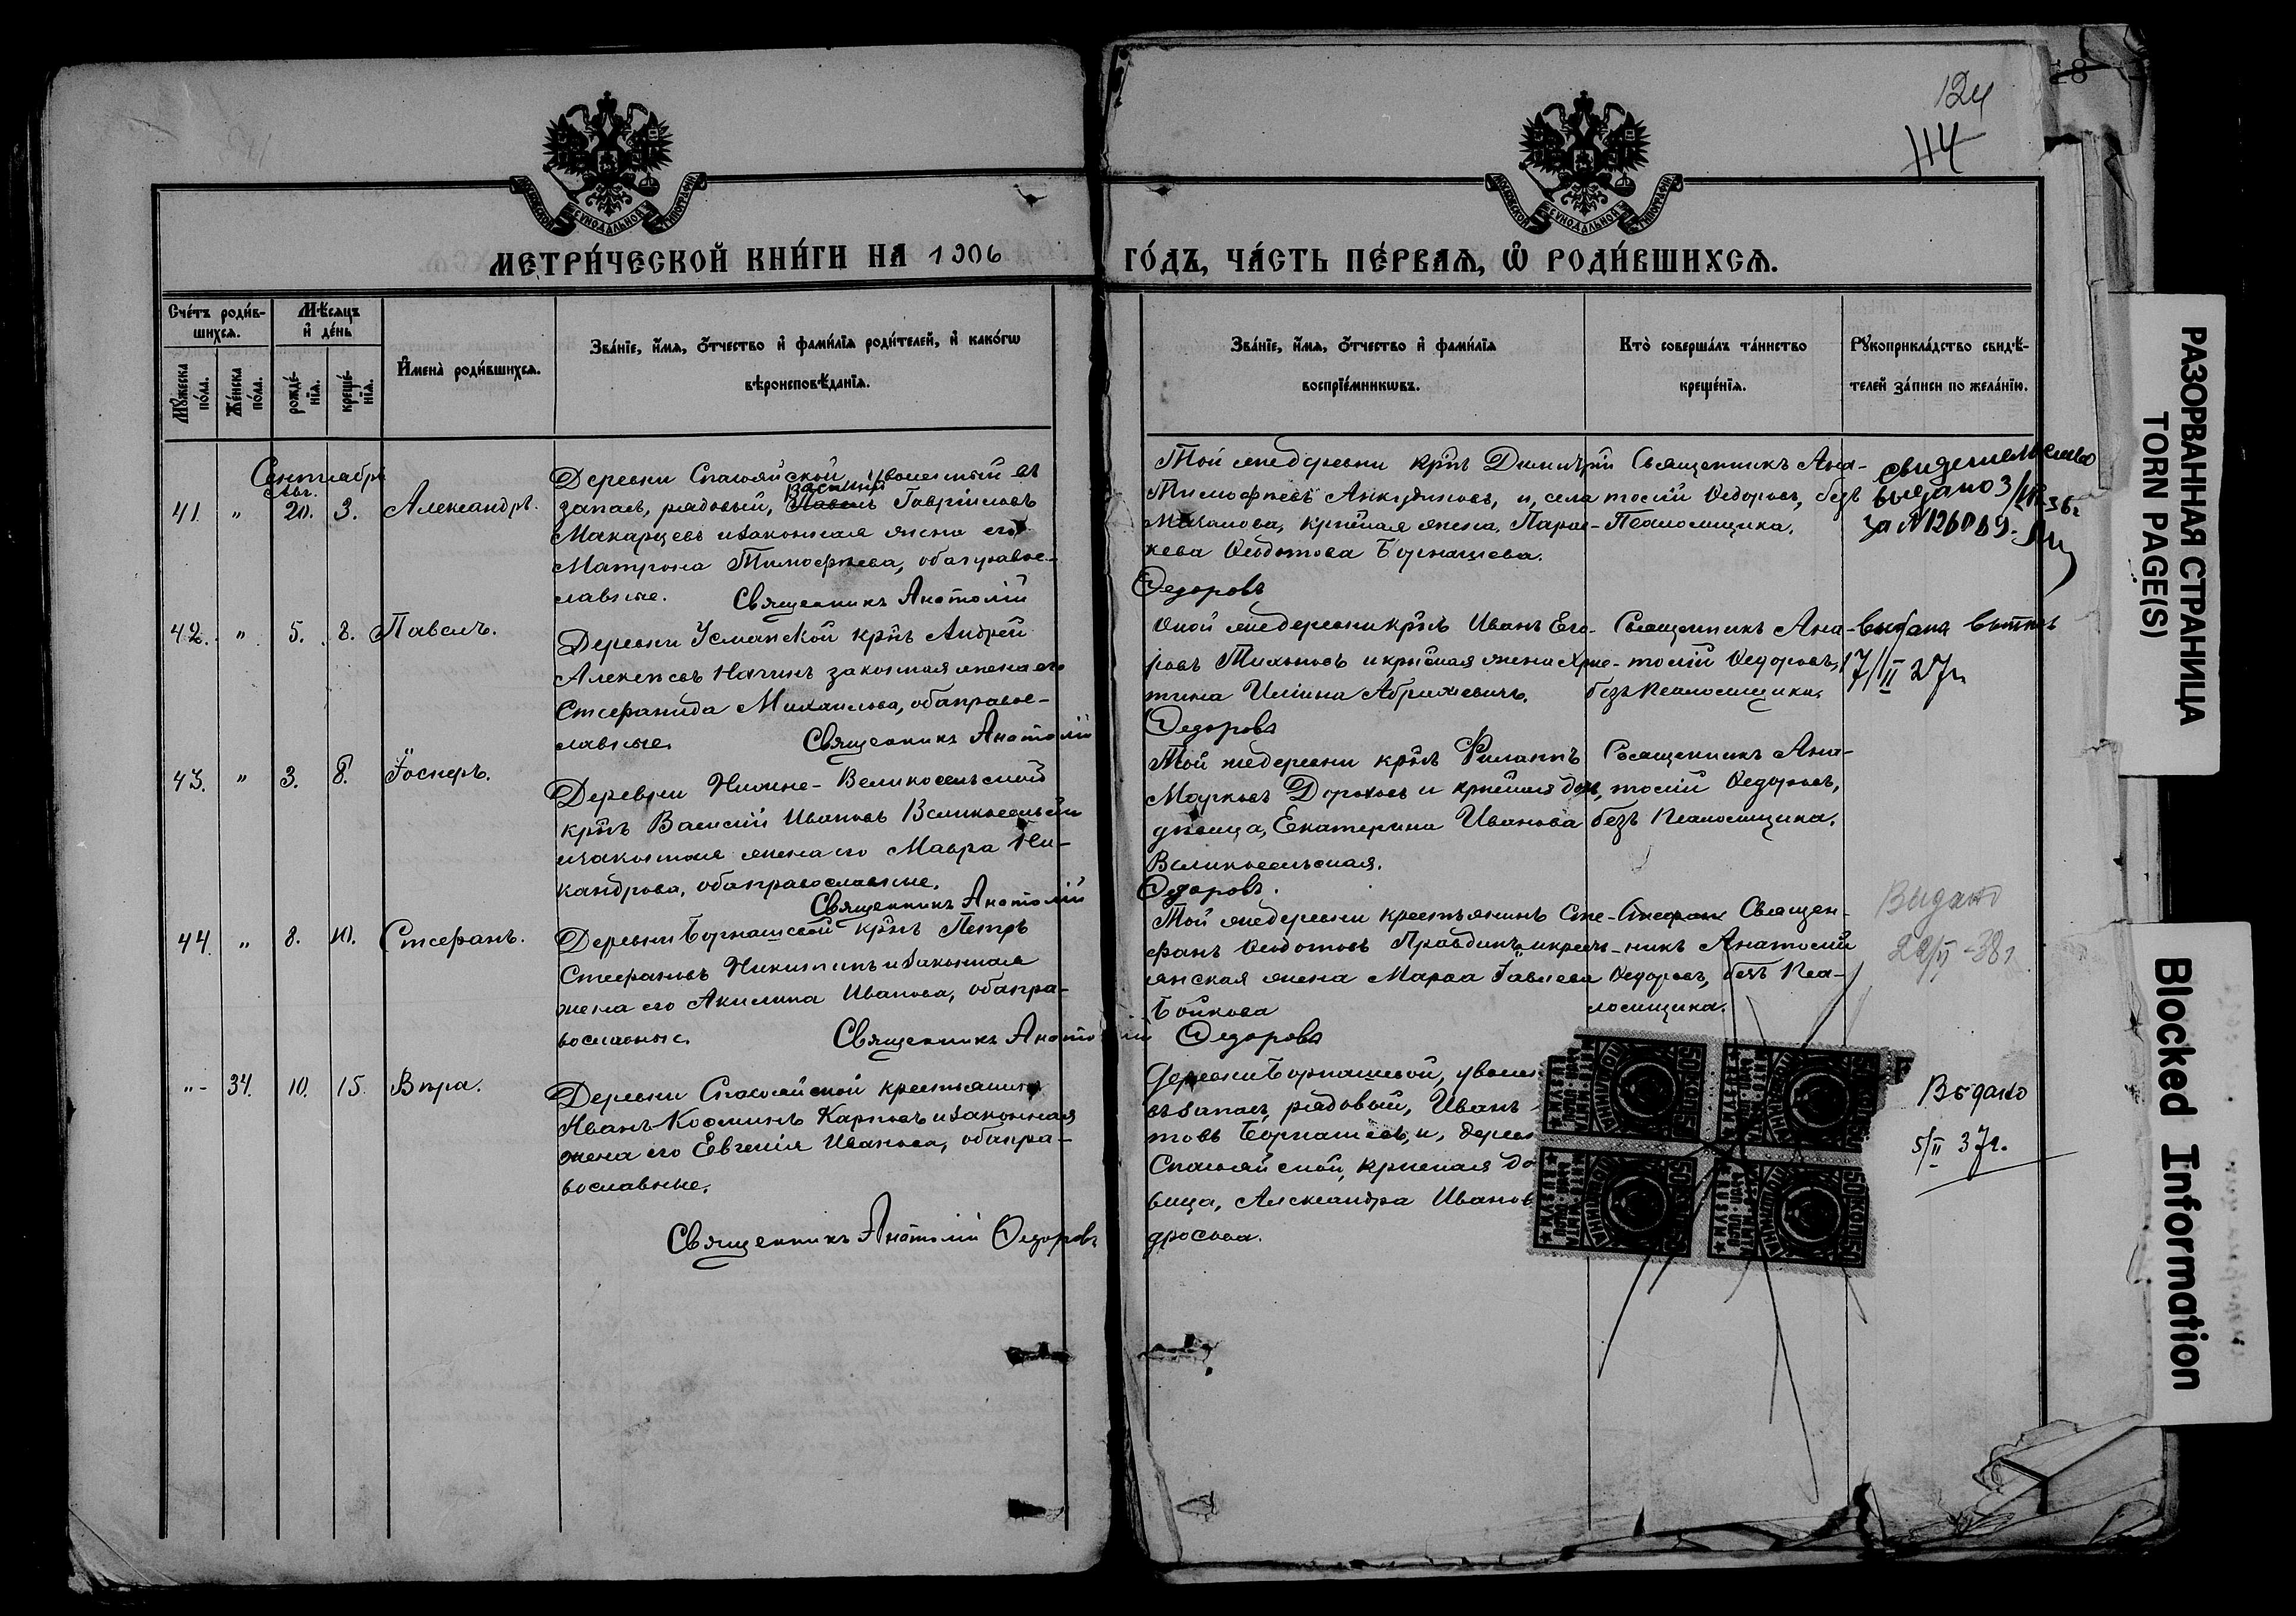 124
114
МОСКОВСКОЙ СУНОДАЛЬНОЙ ТИПОГРАФІИ
МОСКОВСКОЙ СУНОДАЛЬНОЙ ТИПОГРАФІИ
МЕТРИ́ЧЕСКОЙ КНИ́ГИ НА 1906
ГО́ДЪ, ЧА́СТЬ ПЕ́РВАѦ, Ѡ҆ РОДИ́ВШИХСѦ.
Сче́тъ роди́в-
шихсѧ.
Мꙋ́жеска по́ла.
Же́нска по́ла.
Мѣ́сѧцъ
и҆ де́нь
рожде́-
нїѧ.
креще́-
нїѧ.
И҆мена̀ роди́вшихсѧ.
Зва́нїе, и҆́мѧ, ѻ҆́тчество и҆ фами́лїѧ роди́телей, и҆ како́гѡ
вѣроисповѣ́данїѧ.
Зва́нїе, и҆́мѧ, ѻ҆́тчество и҆ фами́лїѧ
воспрїе́мникѡвъ.
Кто̀ соверша́лъ та́инство
креще́нїѧ.
Рꙋкоприкла́дство свидѣ́-
телей за́писи по жела́нїю.
Сентября
Авг.
41. " 20. 3. Александръ.
Деревни Спасяйской, уволенный въ
запасъ, рядовый, Василій Гавріиловъ
Макарцевъ и законная жена его
Матрона Тимофѣева, оба право-
славные.
Священникъ Анатолій
Той же деревни крнъ Димитрій
Тимофѣевъ Анкудиновъ, и, села
жена, Парас-
кева Ѳедотова Борнашева.
Ѳедоровъ
Священникъ Ана-
толій Ѳедоровъ, безъ
Псаломщика.
свидетельство
выдано 3/
за №
42. " 5. 8. Павелъ.
Деревни Усманской крнъ Андрей
Алексѣевъ законная жена его
Стефанида Михаилова, оба право-
славные.
Священникъ Анатолій
Оной же деревни крнъ Иванъ Его-
ровъ Тихоновъ и жена Хрис-
тина
Ѳедоровъ
Священникъ Ана-
толій Ѳедоровъ,
безъ Псаломщика,
17/II 27г.
43. " 3. 8. Іосифъ.
Деревни Нижне-Великосельской
крнъ Василій Ивановъ Великосельскій
и законная жена его Мавра Ни-
кандрова, оба православные.
Священникъ Анатолій
Той же деревни крнъ Филаппъ
Марковъ Дороховъ и
дѣвица, Екатерина Иванова
Великосельская.
Ѳедоровъ.
Священникъ Ана-
толій Ѳедоровъ,
безъ Псаломщика.
44. " 8. 10. Стефанъ.
Деревни Борнашевой крнъ Петръ
Стефановъ Никитинъ и законная
жена его Акилина Иванова, оба пра-
вославные.
Священникъ Анатолій
Той же деревни крестьянинъ Сте-
фанъ Ѳедотовъ Правдинъ и кресть-
янская жена Марѳа
Бойкова
Ѳедоровъ
Священ-
никъ Анатолій
Ѳедоровъ, безъ Пса-
ломщика.
Выдано
"- 34. 10. 15. Вѣра.
Деревни Спасяйской крестьянинъ
Иванъ Косминъ Карповъ и законная
жена его Евгенія Иванова, оба пра-
вославные.
Священникъ Анатолій Ѳедоровъ
Деревни Борнашевой, уволен
въ запасъ, рядовый, Иванъ
товъ Борнашевъ, и, дерев
Спасяйской,
вица, Александра Иванов
дросова.
Выдано
5/II 37г.
50 КОПЕЕК
50 КОПЕЕК
50 КОПЕЕК
50 КОПЕЕК
РАЗОРВАННАЯ СТРАНИЦА
TORN PAGE(S)
Blocked Information